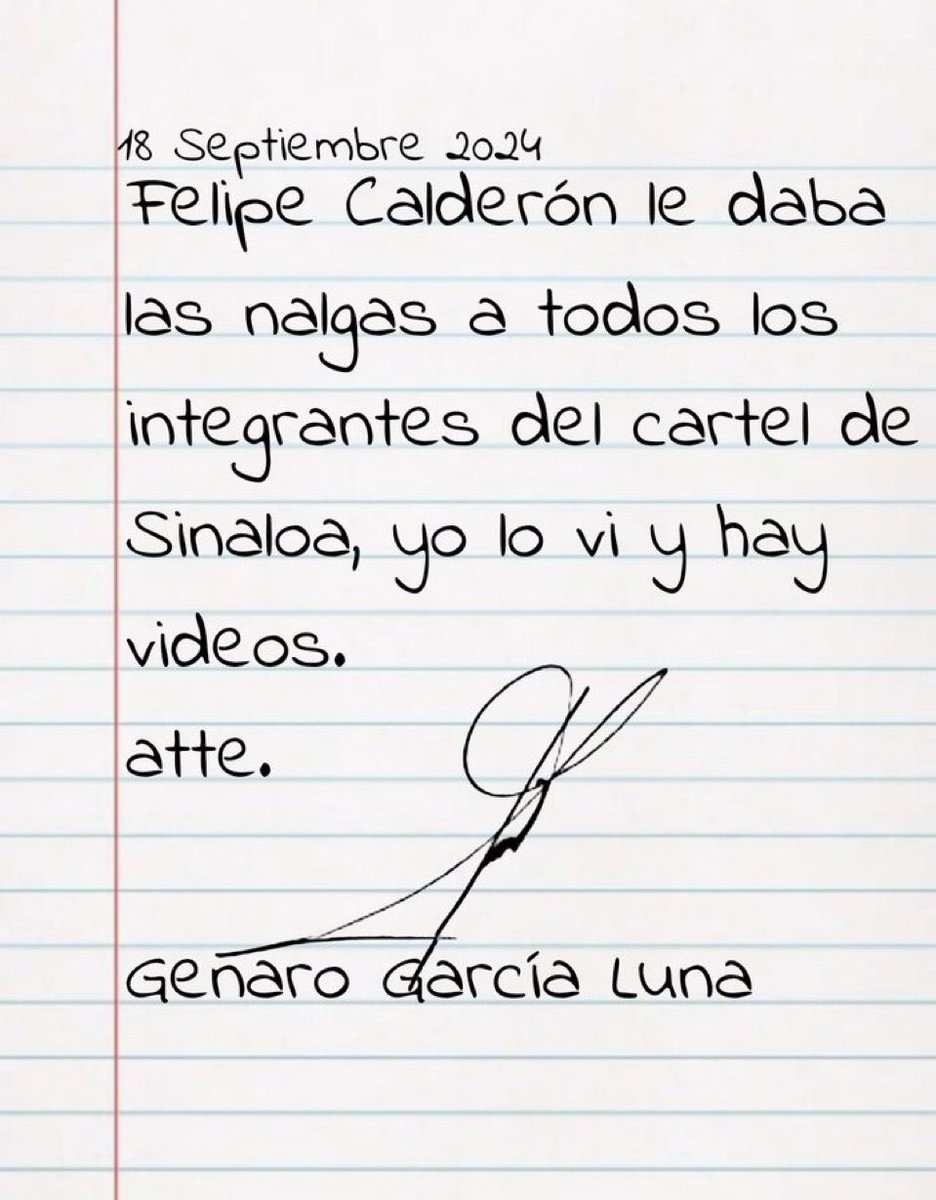 18 Septiembre 2024
Felipe Calderón le daba
las nalgas a todos los
integrantes del cartel de
Sinaloa, yo lo vi y hay
videos.
atte.
Genaro García Luna